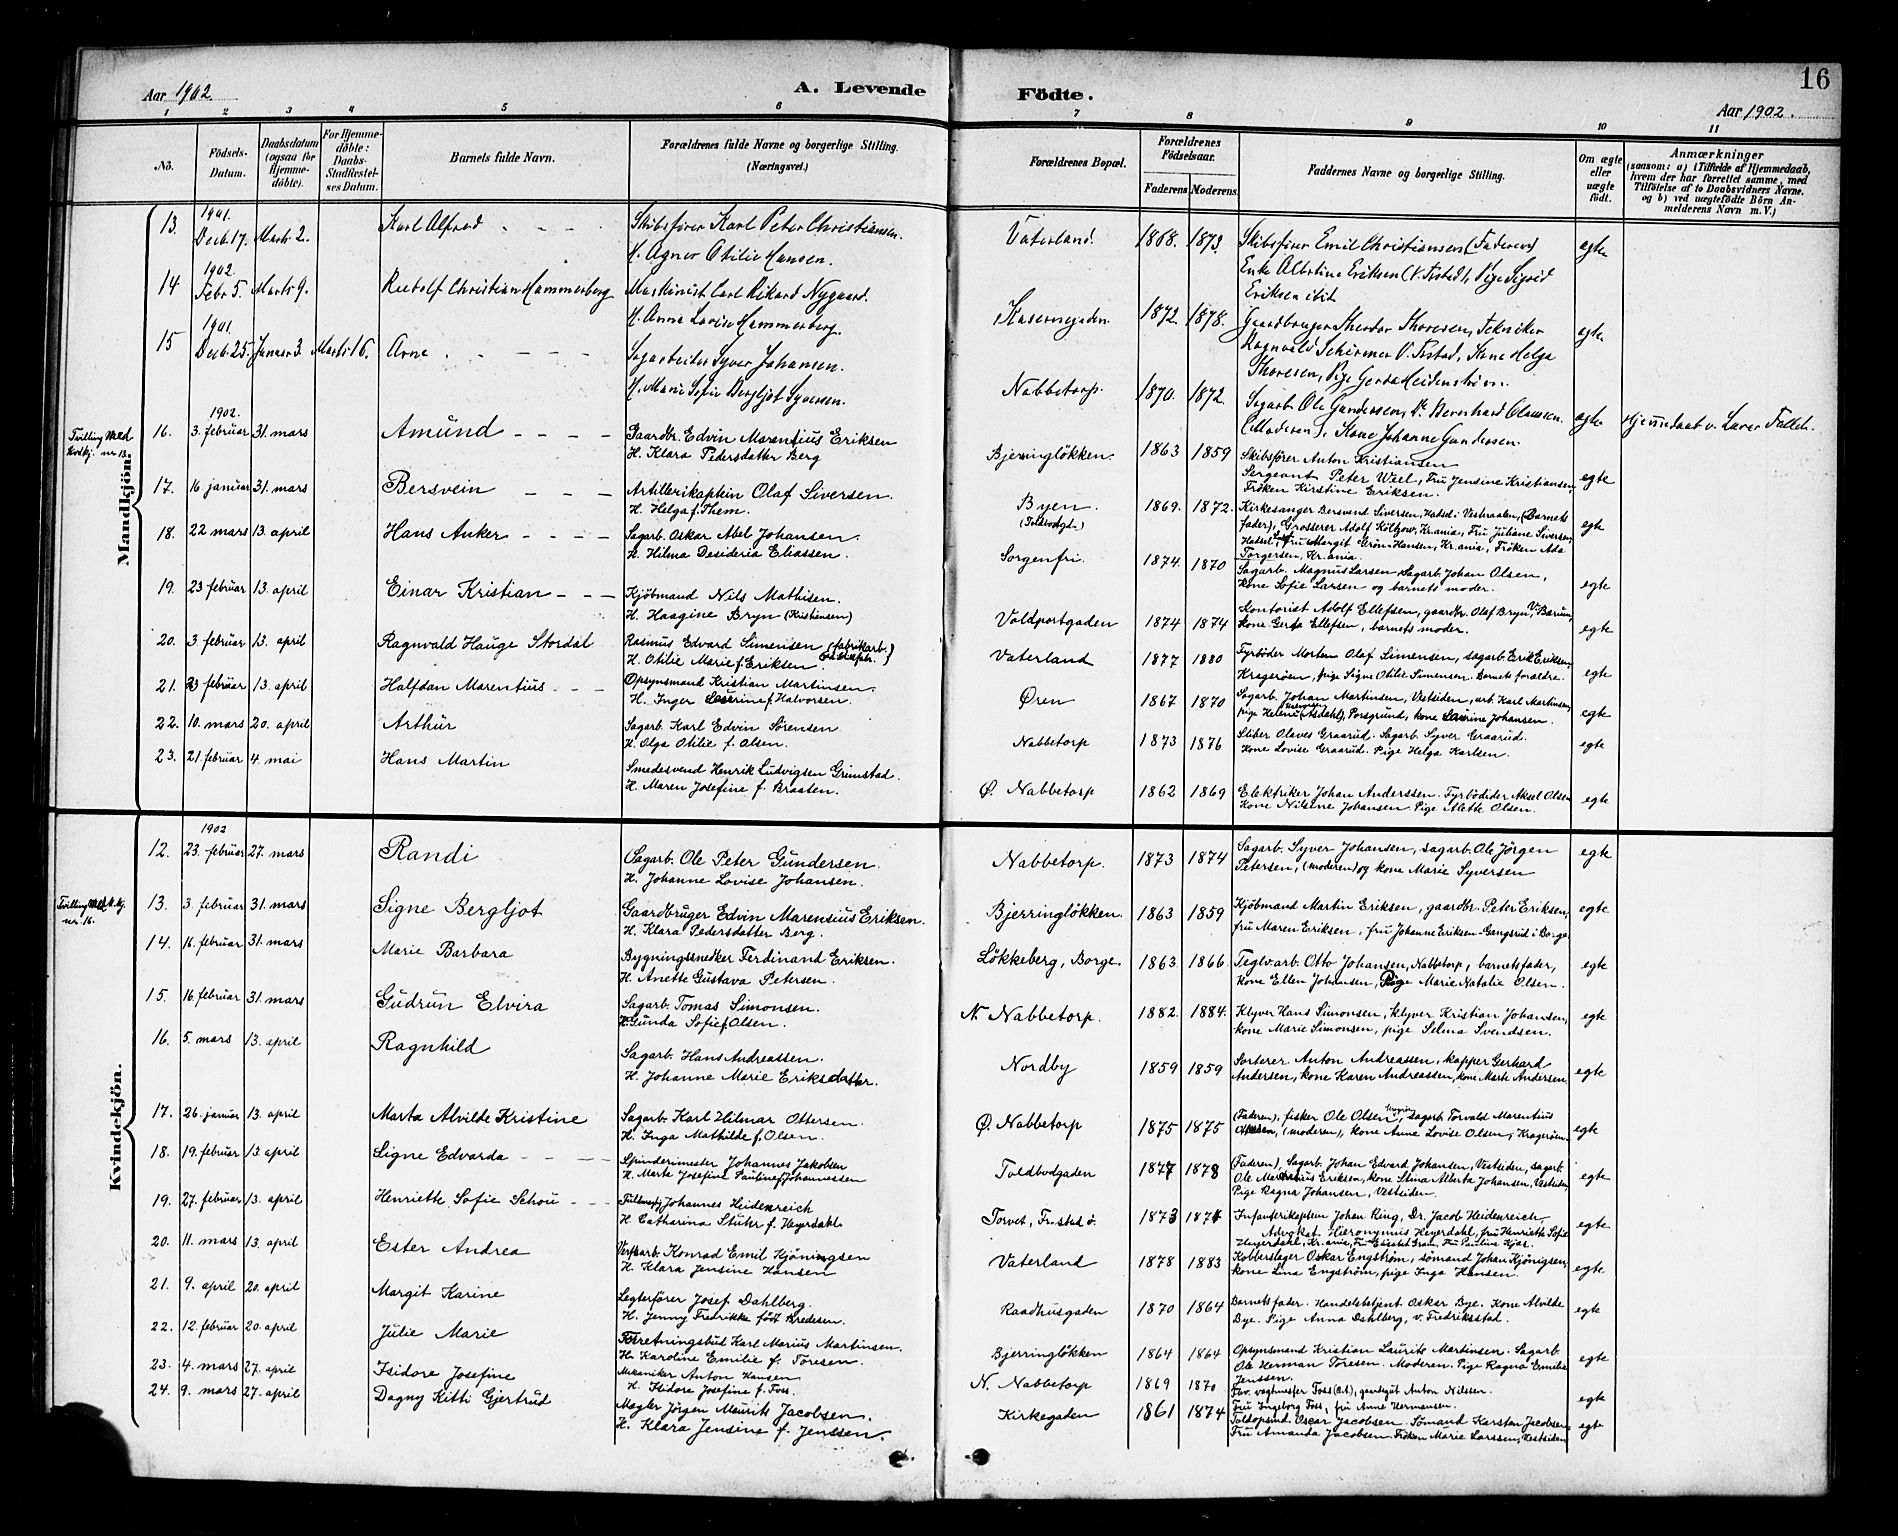 16
Aar 1902.
A. Levende
Födte.
Aar 1902.
1 2 3 4 5 6 7 8 9 10 11
No.
Födsels-
Datum.
Daabsdatum
(ogsaa for
Hjemme-
döbte).
For Hjemme-
döbte:
Daabs-
Stadfæstel-
ses Datum.
Barnets fulde Navn.
Forældrenes fulde Navne og borgerlige Stilling.
(Næringsvei.)
Forældrenes Bopæl.
Forældrenes
Födselsaar.
Faderens Moderens.
Faddernes Navne og borgerlige Stilling.
Om ægte
eller
uægte
födt.
Anmærkninger
(saasom: a) i Tilfælde af Hjemmedaab,
hvem der har forrettet samme, med
Tilföielse af to Daabsvidners Navne,
og b) ved uægtefödte Börn An-
melderens Navn m. V.)
Mandkjön.
13. 1901. Decb. 17. Marts 2. Karl Alfred Skibsfører Karl Peter Christiansen.
H. Agnes Otilie Hansen.
Vaterland. 1868. 1873. Skibsfører Emil Christiansen (Faderen)
Enke Albertine Eriksen (V. Frstad), Pige Sigrid
Eriksen ibid.
egte
14 1902. Febr 5. Marts 9. Rudolf Christian Hammerberg Maskinist Carl Rikard Nygaard.
H. Anna Lovise Hammerberg.
Kasernegaden. 1872. 1878. Gaardbruger Theodor Thoresen, Tekniker
Ragnvald Schirmer V. Frstad, Kone Helga
Thoresen, Pige Gerda Heidenstrøm.
egte
15 1901. Decb. 25. Januar 3 Marts 16. Arne Sagarbeider Syver Johansen.
H. Marie Sofie Bergljot Syversen.
Nabbetorp. 1870. 1872. Sagarb. Ole Gundersen, Do. Bernhard Olaussen.
(Moderen), Kone Johanne Gundersen.
egte Hjemmedaab v. Lærer Falleth.
Tvilling med
Kvdkj. nr. 13.
16. 1902. 3. februar 31. mars Amund Gaardbr. Edvin Marentius Eriksen
H. Klara Pedersdatter Berg
Bjerringløkken. 1863 1859 Skibsfører Anton Kristiansen
Sergeant Peter Weel, Fru Jensine Kristiansen,
Frøken Kirstine Eriksen.
egte
17. 16 januar 31. mars Bersvein Artillerikaptein Olaf Siversen.
H. Helga f. Them.
Byen.
(Toldbodgt.) 1869. 1872. Kirkesanger Bersvend Siversen, Hadsel i Vesteraalen, (Barnets
fader), Grosserer Adolf Koltzow, Kr.ania, Fru Juliane Siversen,
Hadsel, Fru Margit Grøn-Hansen, Kr.ania, Frøken Ada
Torgersen, Kr.ania.
egte
18. 22 mars 13. april Hans Anker Sagarb. Oskar Abel Johansen.
H. Hilma Desideria Eliassen.
Sorgenfri. 1874. 1870 Sagarb. Magnus Larsen Sagarb. Johan Olsen,
Kone Sofie Larsen og barnets moder.
egte
19. 23 februar 13. april Einar Kristian Kjöbmand Nils Mathisen.
H. Haagine Bryn (Kristensen)
Voldportgaden 1874 1874 Kontorist Adolf Ellefsen, gaardbr. Olaf Bryn, V. Bærum,
Kone Gerda Ellefsen, barnets moder.
egte
20. 3. februar 13. april Ragnvald Hauge Stordal Rasmus Edvard Simensen (fabrikarb.)
H. Otilie Marie f. Eriksen
Vaterland 1877 1880 Fyrböder Morten Olaf Simensen, sagarb. Erik Eriksen,
Kragerøen, pige Signe Otilie Simensen. Barnets forældre.
egte
21. 23 februar 13. april Halfdan Marentius Opsynsmand Kristian Martinsen.
H. Inger Laurine f. Halvorsen.
Øren 1867 1870 Sagarb. Johan Martinsen, Vestsiden, arb. Karl Martinsen,
pige Helene (Asdahl), Porsgrund, kone Laurine Johansen.
egte
22. 10. mars 20. april Arthur Sagarb. Karl Edvin Sørensen
H. Olga Otilie f. Olsen.
Nabbetorp 1873 1876 Sliber Olaves Graarud. Sagarb. Syver Graarud.
Kone Lovise Graarud. Pige Helga Karlsen.
egte
23. 21. februar 4. mai Hans Martin Smedesvend Henrik Ludvigsen Grimstad.
H. Maren Josefine f. Braaten.
Ø. Nabbetorp 1862 1869 Elektriker Johan Anderssen. Fyrbödider Aksel Olsen
Kone Nilsine Johansen. Pige Alette Olsen.
egte
Kvindekjön.
12. 1902 23. februar 27. mars Randi Sagarb. Ole Peter Gundersen.
H. Johanne Lovise Johansen.
Nabbetorp. 1873 1874 Sagarb. Syver Johansen, sagarb. Ole Jörgen
Petersen, (moderen) og kone Marie Syversen
egte
Tvilling med M.kj.
nr. 16.
13. 3. februar 31. mars Signe Bergljot Gaardbruger Edvin Marensius Eriksen.
H. Klara Pedersdatter Berg.
Bjerringløkken. 1863 1859 Kjöbmand Martin Eriksen, gaardbr. Peter Eriksen,
fru Maren Eriksen, fru Johanne Eriksen-Gangsrud i Borge.
egte
14. 16. februar 31. mars Marie Barbara Bygningssnedker Ferdinand Eriksen.
H. Anette Gustava Petersen.
Løkkeberg, Borge. 1863 1866. Teglv.arb. Otto Johansen, Nabbetorp, barnets fader,
Kone Ellen Johansen, Pige Marie Natalie Olsen.
egte
15. 16. februar 31. mars Gudrun Elvira Sagarb. Tomas Simonsen.
H. Gunda Sofie f. Olsen.
N. Nabbetorp. 1882. 1884. Klyver Hans Simonsen, klyver Kristian Johansen,
kone Marie Simonsen, pige Selma Svendsen.
egte
16. 5. mars 13. april Ragnhild Sagarb. Hans Andreassen.
H. Johanne Marie Eriksdatter.
Nordby 1859 1859 Sorterer Anton Andreassen, kapper Gerhard
Andersen, kone Karen Andreassen, kone Marte Andersen.
egte
17. 26. januar 13. april Marta Alvilde Kristine Sagarb. Karl Hilmar Ottersen.
H. Inga Mathilde f. Olsen.
Ø. Nabbetorp 1875 1875 (Faderen), fisker Ole Olsen, sagarb. Torvald Marentius
Ottesen, (moderen), kone Anne Lovise Olsen, Kragerøen.
egte
18. 19. februar 13. april Signe Edvarda Spinderimester Johannes Jakobsen
H. Marte Josefine Pauline f. Johannessen
Toldbodgaden 1877 1878 (Faderen), Sagarb. Johan Edvard Johansen, Vestsiden, sagarb.
Ole Marentius Eriksen, kone Stina Alberta Johansen, Vestsiden,
Pige Ragna Johansen, Vestsiden.
egte
19. 27. februar 13. april Henriette Sofie Schou Fuldmægtig Johannes Heidenreich
H. Catharina Stuhr f. Heyerdahl.
Torvet, Fr.stad ö. 1873 1874 Infanterikaptein Johan Ring, Dr. Jacob Heidenreich
Advokat Hieronymus Heyerdahl, fru Henriette Sofie
Heyerdahl, Kr.ania, Fru Elisabet Gram, Fru Pauline Kjær.
egte
20. 11. mars 13. april Ester Andrea Verftsarb. Konrad Emil Kjöningsen
H. Klara Jensine Hansen
Vaterland 1878 1883 Kobberslager Oskar Engström, sömand Johan Kjönigsen,
kone Lina Engström, pige Inga Hansen.
egte
21. 9. april 20. april Margit Karine Legterfører Josef Dahlberg.
H. Jenny Fredrikke födt Bredesen.
Raadhusgaden 1870 1864 Barnets fader. Handelsbetjent Oskar Bye. Kone Alvilde
Bye. Pige Anna Dahlberg, v. Fredriksstad.
egte
22. 12. februar 20. april Julie Marie Forretningsbud Karl Marius Martinsen.
H. Karoline Emilie f. Toresen.
Bjerringlökken 1864 1864 Opsynsmand Kristian Laurits Martinsen. Sagarb.
Ole Herman Toresen. Moderen. Pige Ragna Emilie
Jenssen.
egte
23. 4. mars 27. april Isidore Josefine Mekaniker Anton Hansen
H. Isidore Josefine f. Foss.
N. Nabbetorp 1869 1870 Foss (o.t.), gaardgut Anton Nilssen.
Fru Ingeborg Foss, fru Anne Hermansen.
egte
24. 9. mars 27. april Dagny Kitti Gjertrud Mægler Jörgen Mauritz Jacobsen.
H. Klara Jensine f. Jenssen.
Kirkegaden 1861 1874 Toldopsmd. Oscar Jacobsen. Sömand Karsten Jacobsen
Fru Amanda Jacobsen. Fröken Marie Larssen, Vestsiden
egte